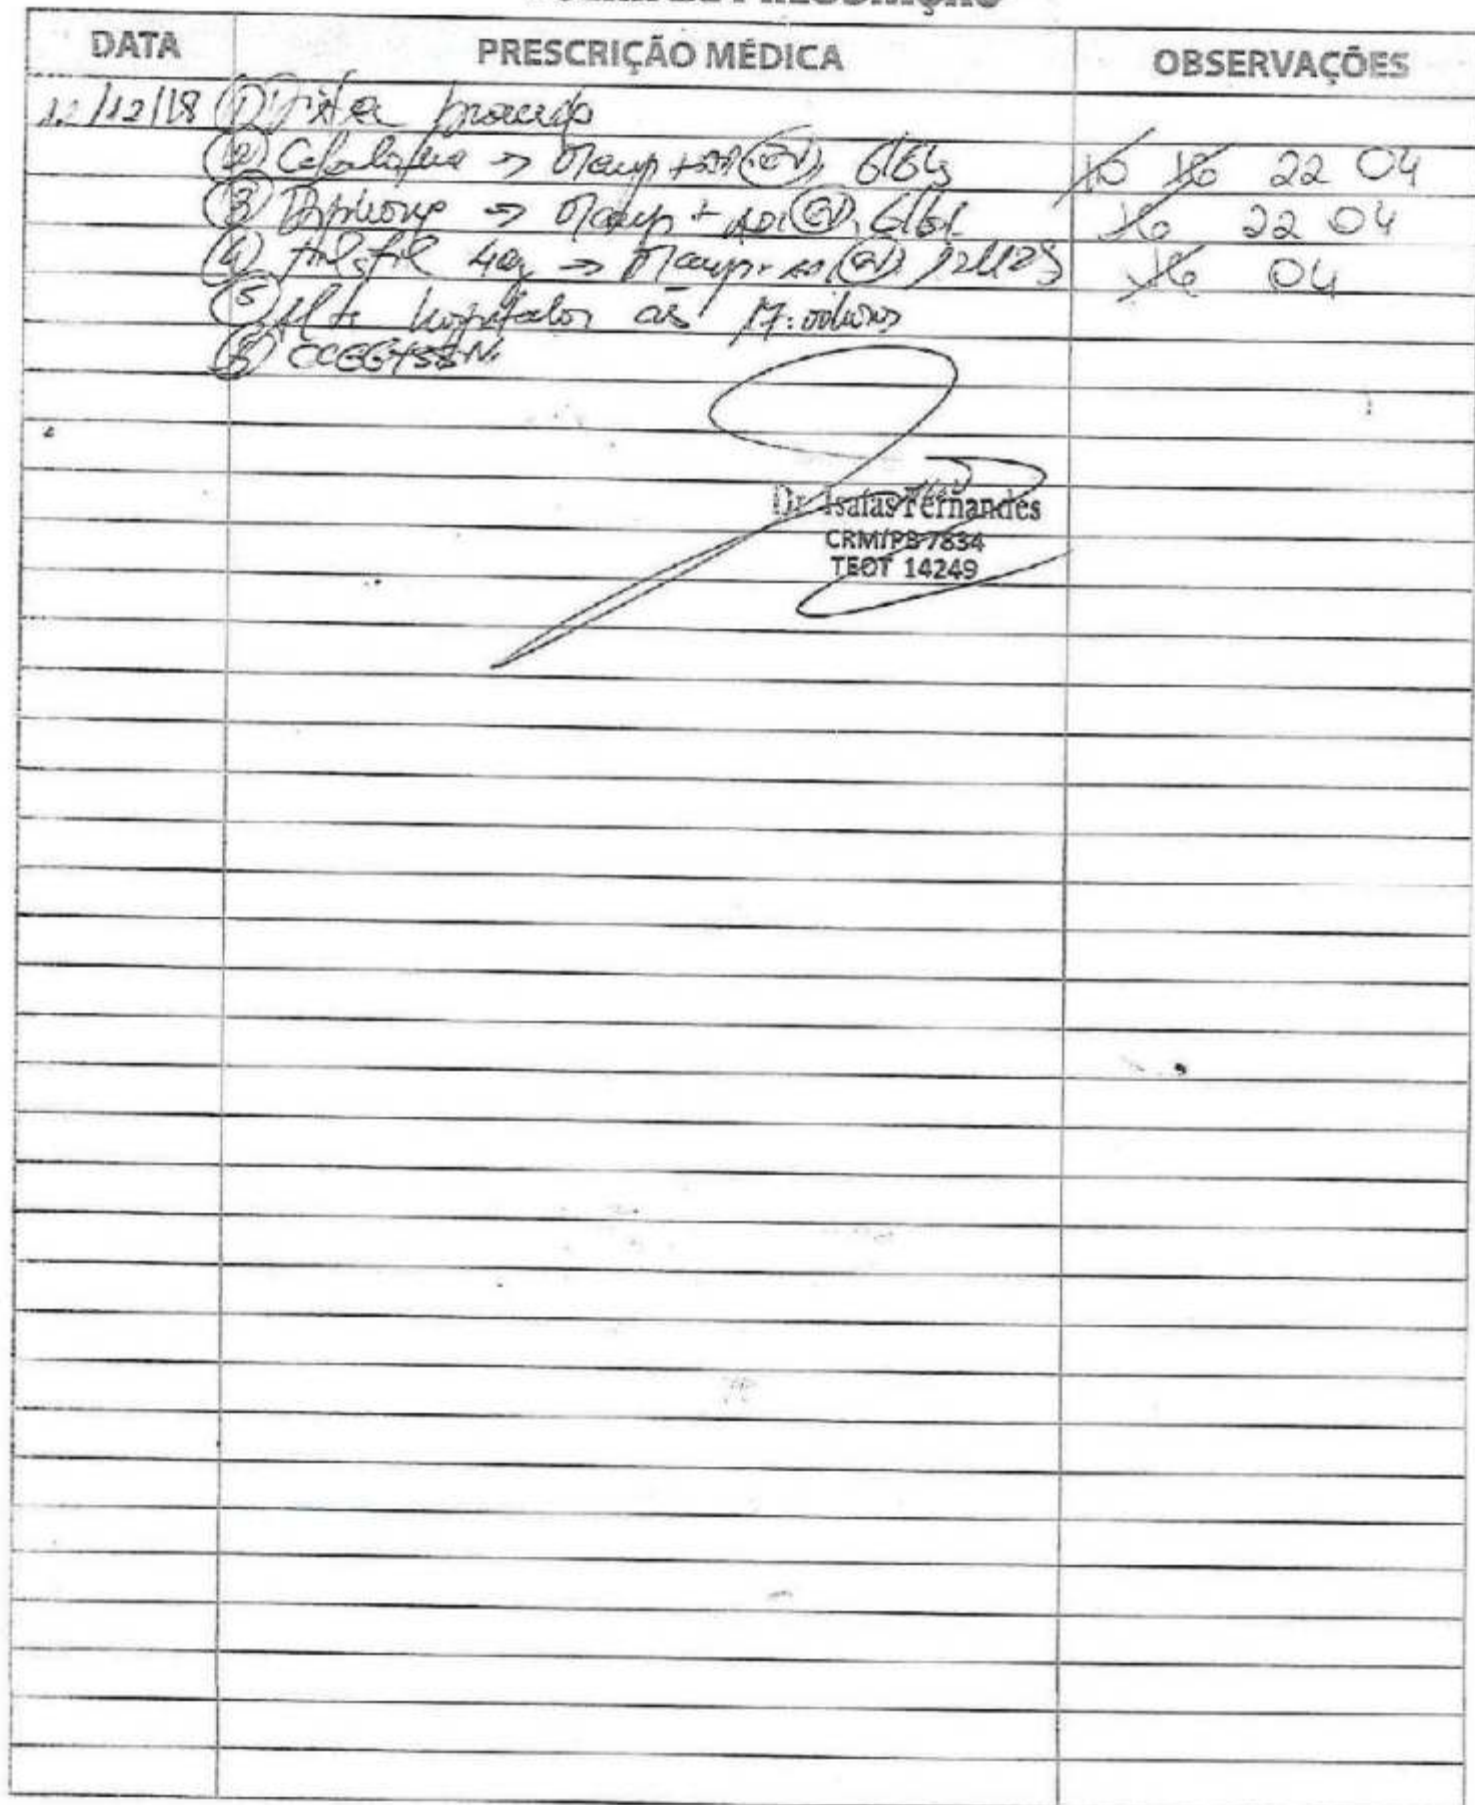 DATA PRESCRIÇÃO MÉDICA OBSERVAÇÕES
12/12/18 ① Dieta branda
② Cefalotina → 01 amp + AD (EV) 6/6hs 10 16 22 04
③ Dipirona → 01 amp + AD (EV) 6/6h 16 22 04
④ 40mg → 01 amp + AD (EV) 12/12hs 16 04
⑤ Alta hospitalar às 17:00 horas
⑥ CCGG + SSVV
Dr. Isaias Fernandes
CRM/PB 7834
TEOT 14249